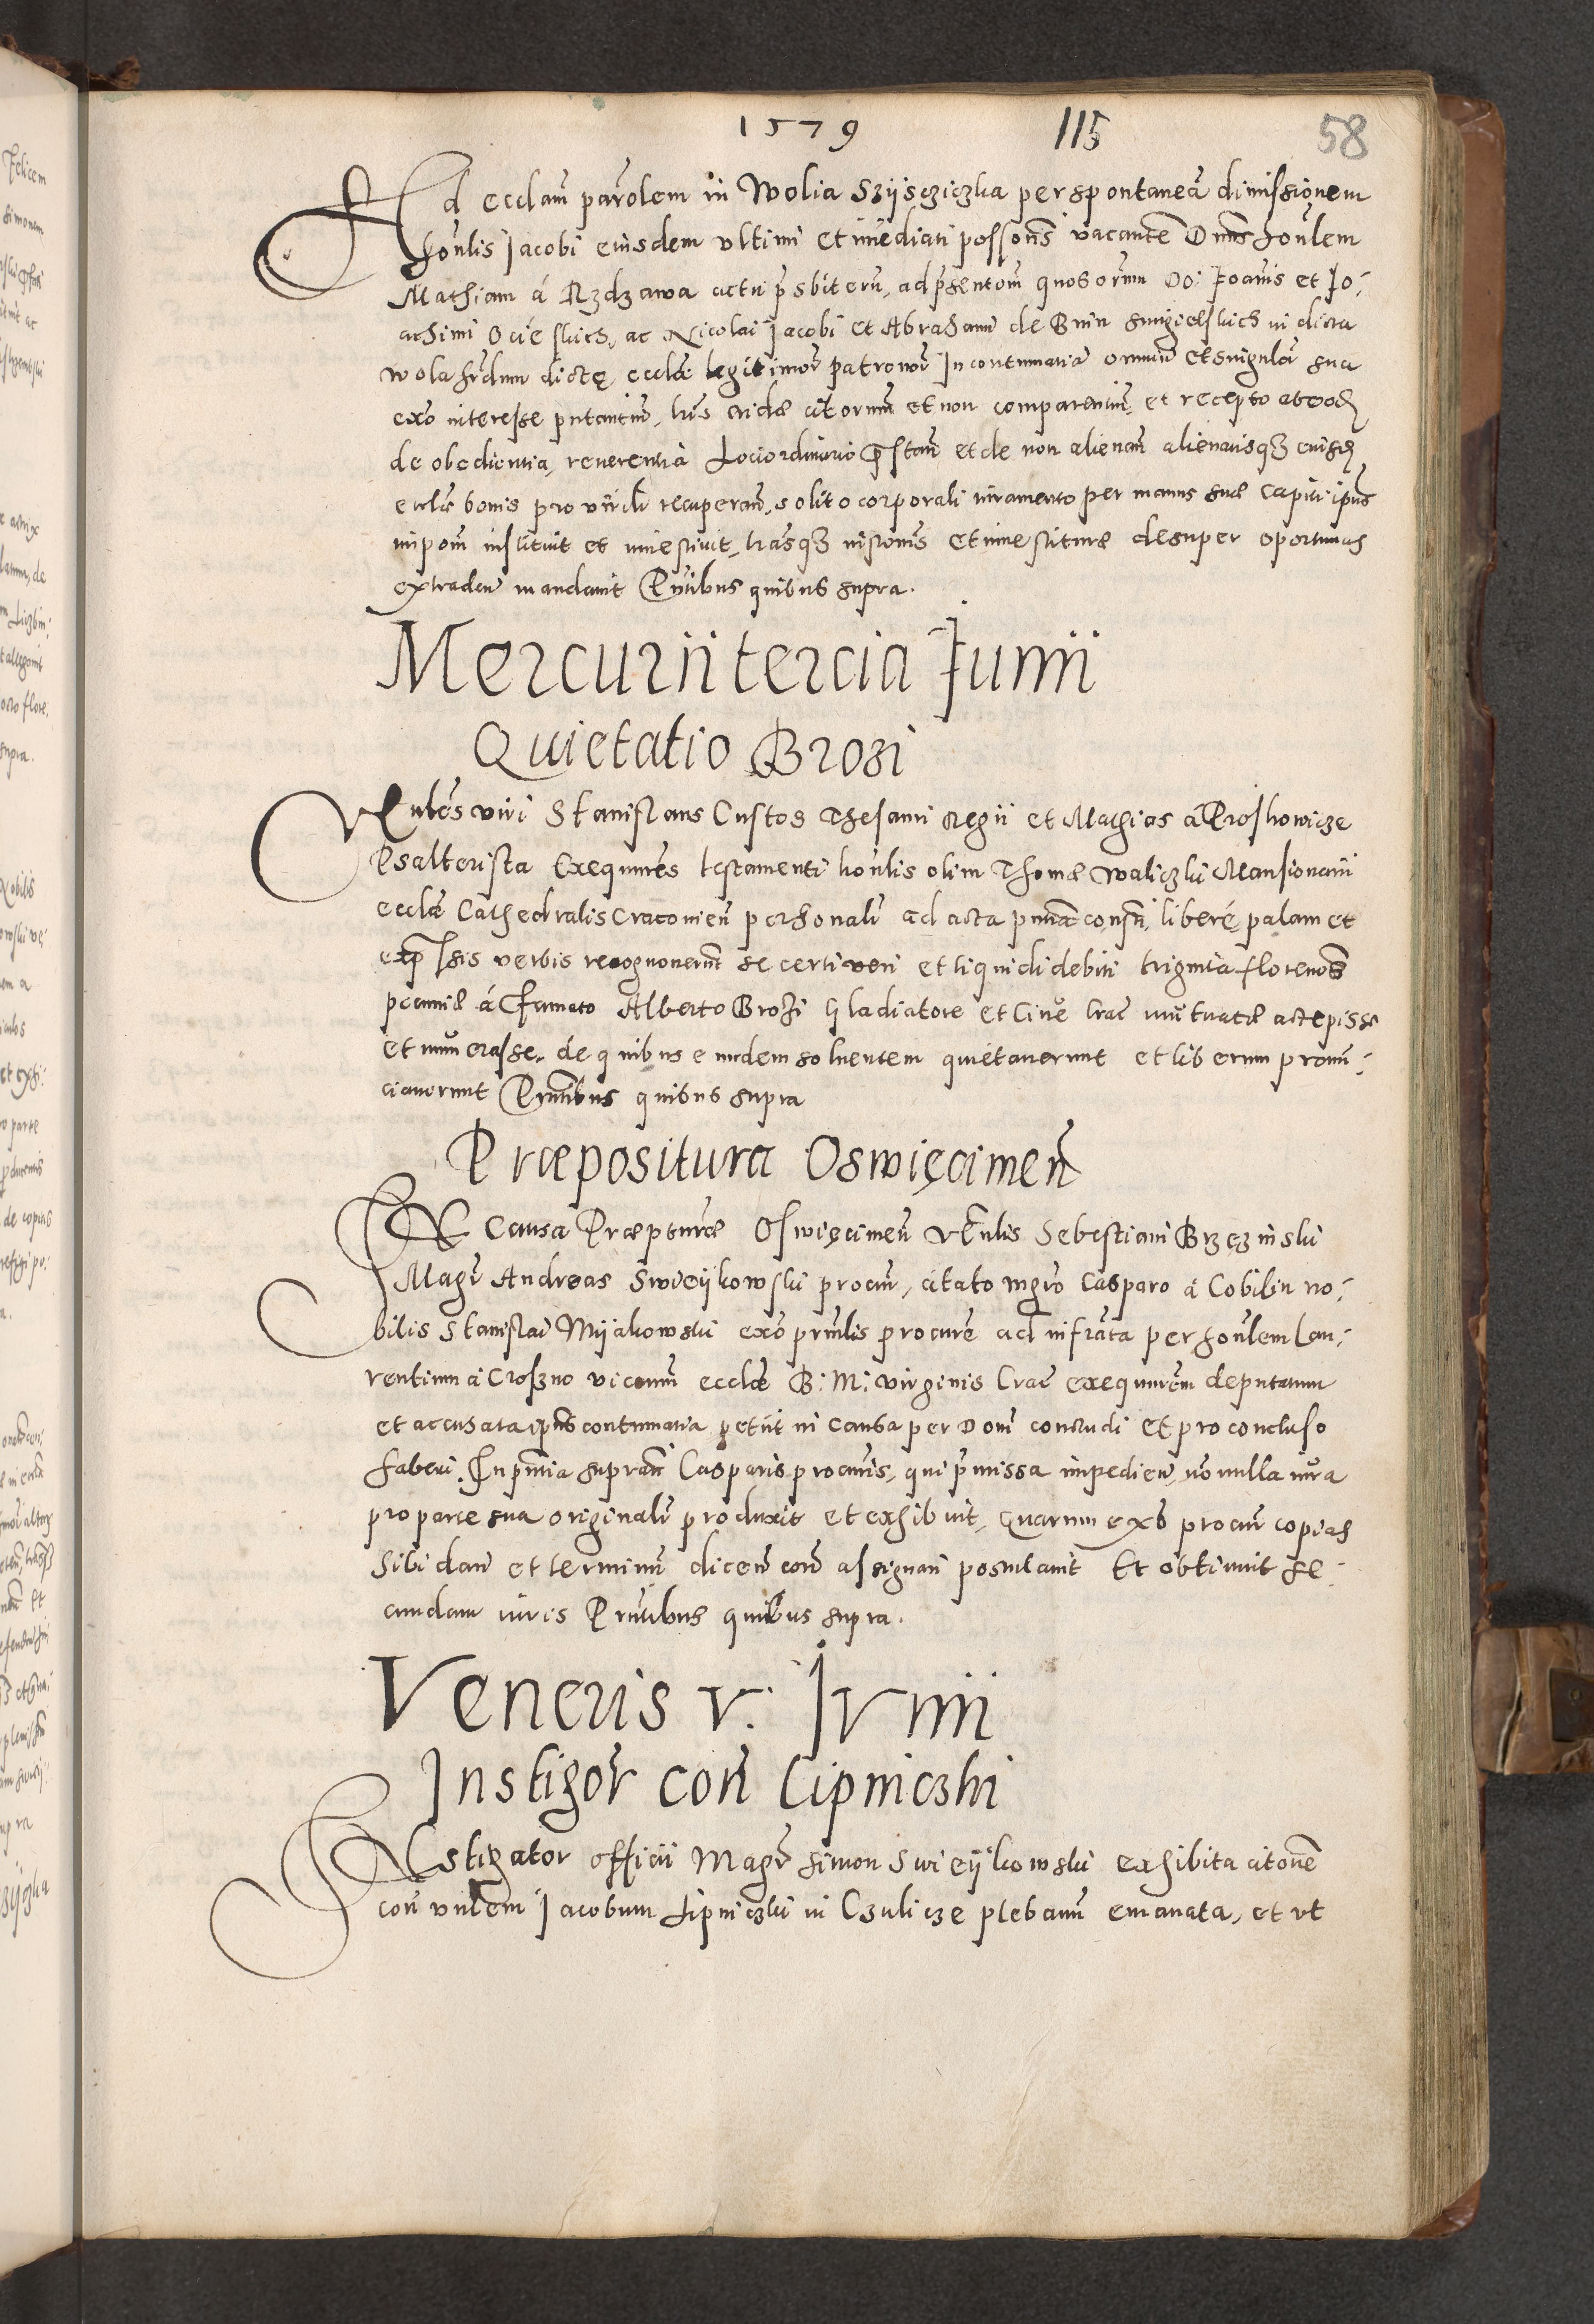 1579 115 58
Ad eccłam parolem in Wolia Szÿscziczka per spontaneã dimissionem
honlis Jacobi eiusdem vltimi et imediati possons vacantẽ Dnus honlem
Mathiam á Rzdzawa actu prsbiterũ, ad prsentom quoborum DD: Joanis et Jo:
achimi Ocieskich, ac Nicolai Jacobi et Abrahami de Bnin Smigielskich in dicta
Wola hrdum dictę ecclæ legitimor patronor In contumatia omnium et singulor sua
exo interesse putantium, lris eidæ citorum et non comparentium, et recepto ab eod
de obedientia, reverentia Loci ordinario prstan et de non alienan alienatisqz eiusd
eclæ bonis pro virili recuperan, solito corporali iuramento per manus suæ capiti ipius
impom instituit et investivit, lrasqz instonis et investituræ desuper oportunas
extraden mandavit Pntibus quibus supra.
Mercurii tercia Junii
Quietatio Brozi
Vnles viri Stanislaus Custos Thesauri Regii et Mathias á Proshowicze
Psalterista Exequutores testamenti honlis olim Thomæ Waliczki Mansionarii
ecclæ Cathedralis Cracovien personalr ad acta pntia consti, liberè, palam et
exprssis verbis recognoverunt se certi veri et liquidi debiti triginta florenos
pecuniæ á Famato Alberto Brozi Gladiatore et Cive Crac mutuatæ accepisse
et numerasse, de quibus eundem solventem quietaverunt et liberum pronu:
ciaverunt Pntibus quibus supra
Præpositura Oswięcimeñ
In Causa Præpturæ Oswięcimeñ vnlis Sebestiani Brzęzinski
Magr Andreas Swieÿkowski procur, citato mgro Casparo á Cobilin no:
bilis Stanislai Mÿakowski exo prnlis procure ad infrata per honlem Lau:
rentium á Croszno vicarium ecclæ B: M: Virginis Crac exequutem deputatum
et accusata ipius contumatia petiit in causa per Dom concludi et pro concluso
haberi. In pntia suprati Casparis procuris, qui prmissa impedien, nonnulla iura
pro parte sua originalr produxit et exhibuit, quarum exo procur copias
sibi dari et terminum dicen con assignari postulavit Et obtinuit se:
cundum iuris Pntibus quibus supra.
Veneris V. Junii
Instigor con Lipniczki
Instigator officii Magr Simon Swieÿkowski exhibita citone
con vnlem Jacobum Lipniczki in Czulicze plebanum emanata, et vt